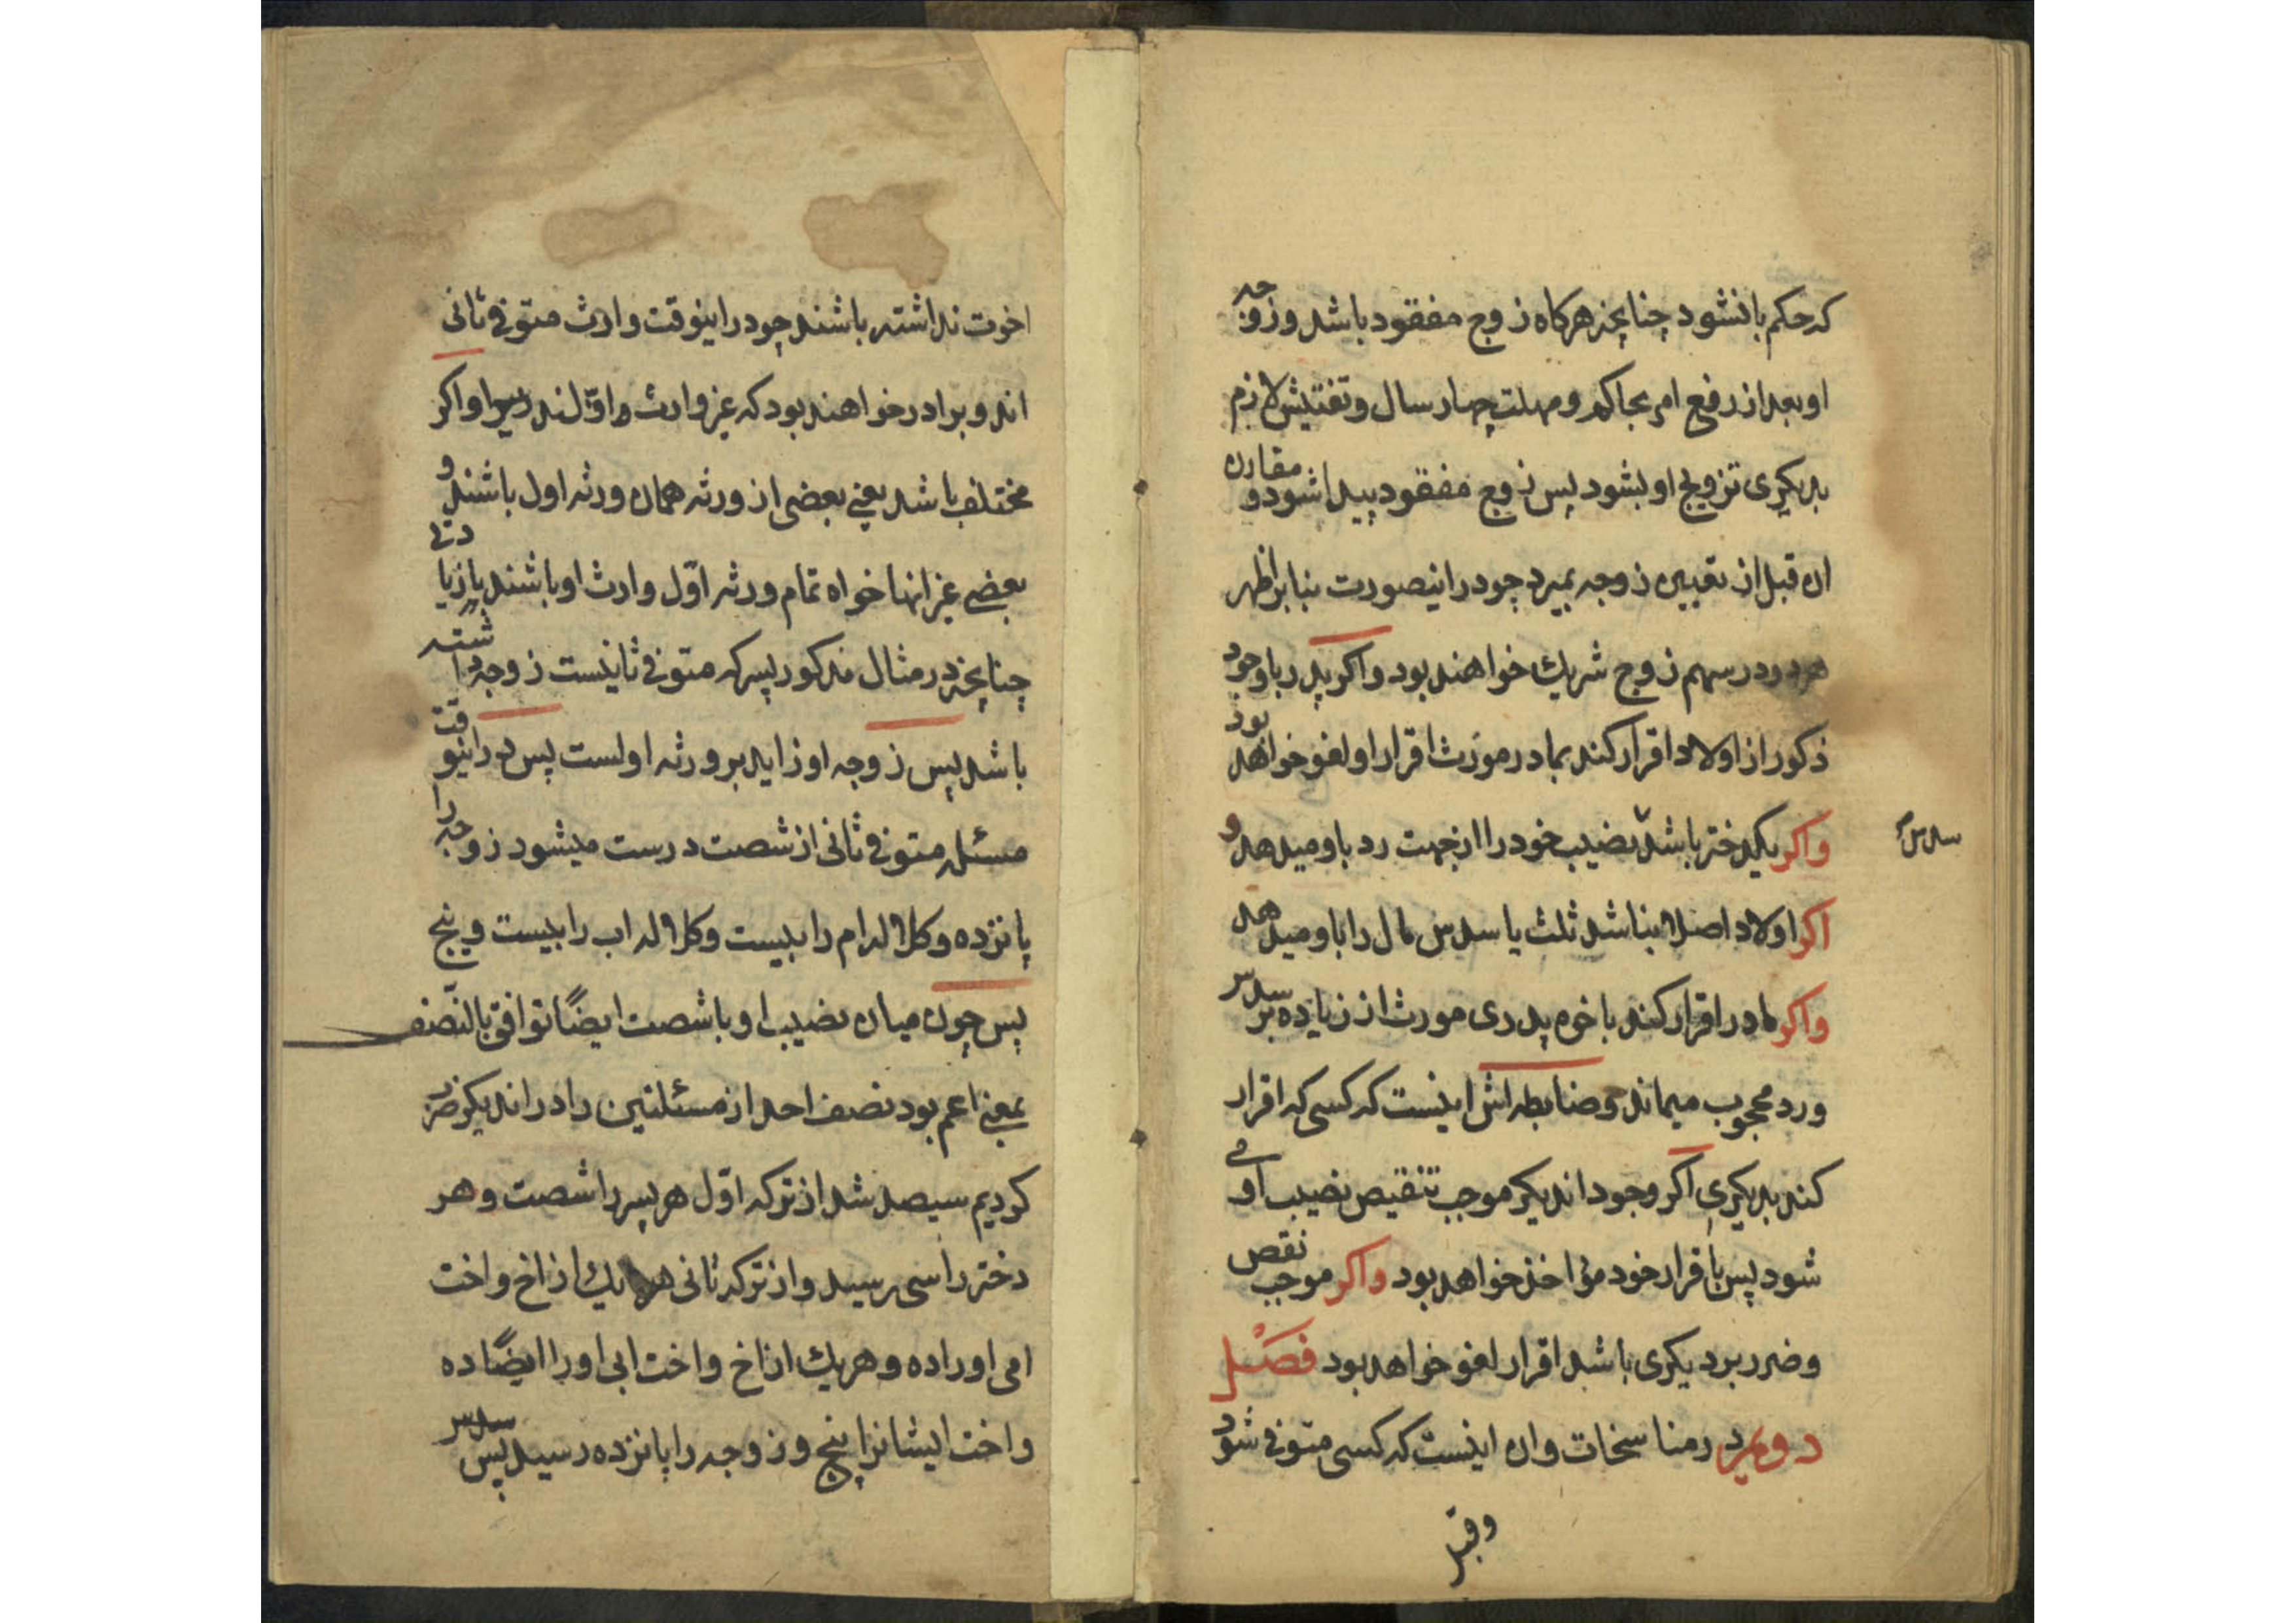 که حکم بانشود چنانچه هرکاه زوج مفقود باشد و زوجه
او بعد از رفع امر بحاکم و مهلت چهار سال و تفتیش لازم
بدیکری تزویج او بشود پس زوج مفقود پیدا شود و مقارن
ان قبل از تعیین زوجه بمیرد چو در اینصورت بنابر اظهر
هر دو در سهم زوج شریک خواهند بود و اکر پدر با وجود
ذکور از اولاد اقرار کند بمادر مورث اقرار او لغو خواهد بود
و اکر یکدختر باشد نصیب خود را از جهت رد باو میدهد و
سدس
اکر اولاد اصلا نباشد ثلث یا سدس مال را باو میدهد
و اکر مادر اقرار کند باخوه پدری مورث از زیاده بر سدس
و رد محجوب میماند و ضابطه اش اینست که کسی که اقرار
کند بدیکری اکر وجود اندیکر موجب تنقیص نصیب او می
شود پس باقرار خود مؤاخذ خواهد بود و اکر موجب نقص
و ضرر بر دیکری باشد اقرار لغو خواهد بود فصل
دویم در مناسخات و ان اینست که کسی متوفی شود
و قبل
اخوت نداشته باشند چو در اینوقت وارث متوفی ثانی
اند و برادر خواهند بود که غیر وارث اول اند و اکر
مختلف باشد یعنی بعضی از ورثه همان ورثه اول باشند و
بعضی غیر انها خواه تمام ورثه اول وارث او باشند با زیادتی
چنانچه در مثال مذکور پسر که متوفی ثانیست زوجه داشته
باشد پس زوجه او زاید بر ورثه اولست پس در اینوقت
مسئله متوفی ثانی از شصت درست میشود زوجه را
پانزده و کلاله ام را بیست و کلاله اب را بیست و پنج
پس چون میان نصیب او با شصت ایضًا توافق بالنصف
بمعنی اعم بود نصف احد از مسئلتین را در اندیکر ضرب
کردیم سیصد شد از ترکه اول هر پسر را شصت و هر
دختر را سی رسید و از ترکه ثانی هر یک از اخ و اخت
امی او را ده و هر یک از اخ و اخت ابی او را ایضًا ده
و اخت ایشانرا پنج و زوجه را پانزده رسید پس سدس